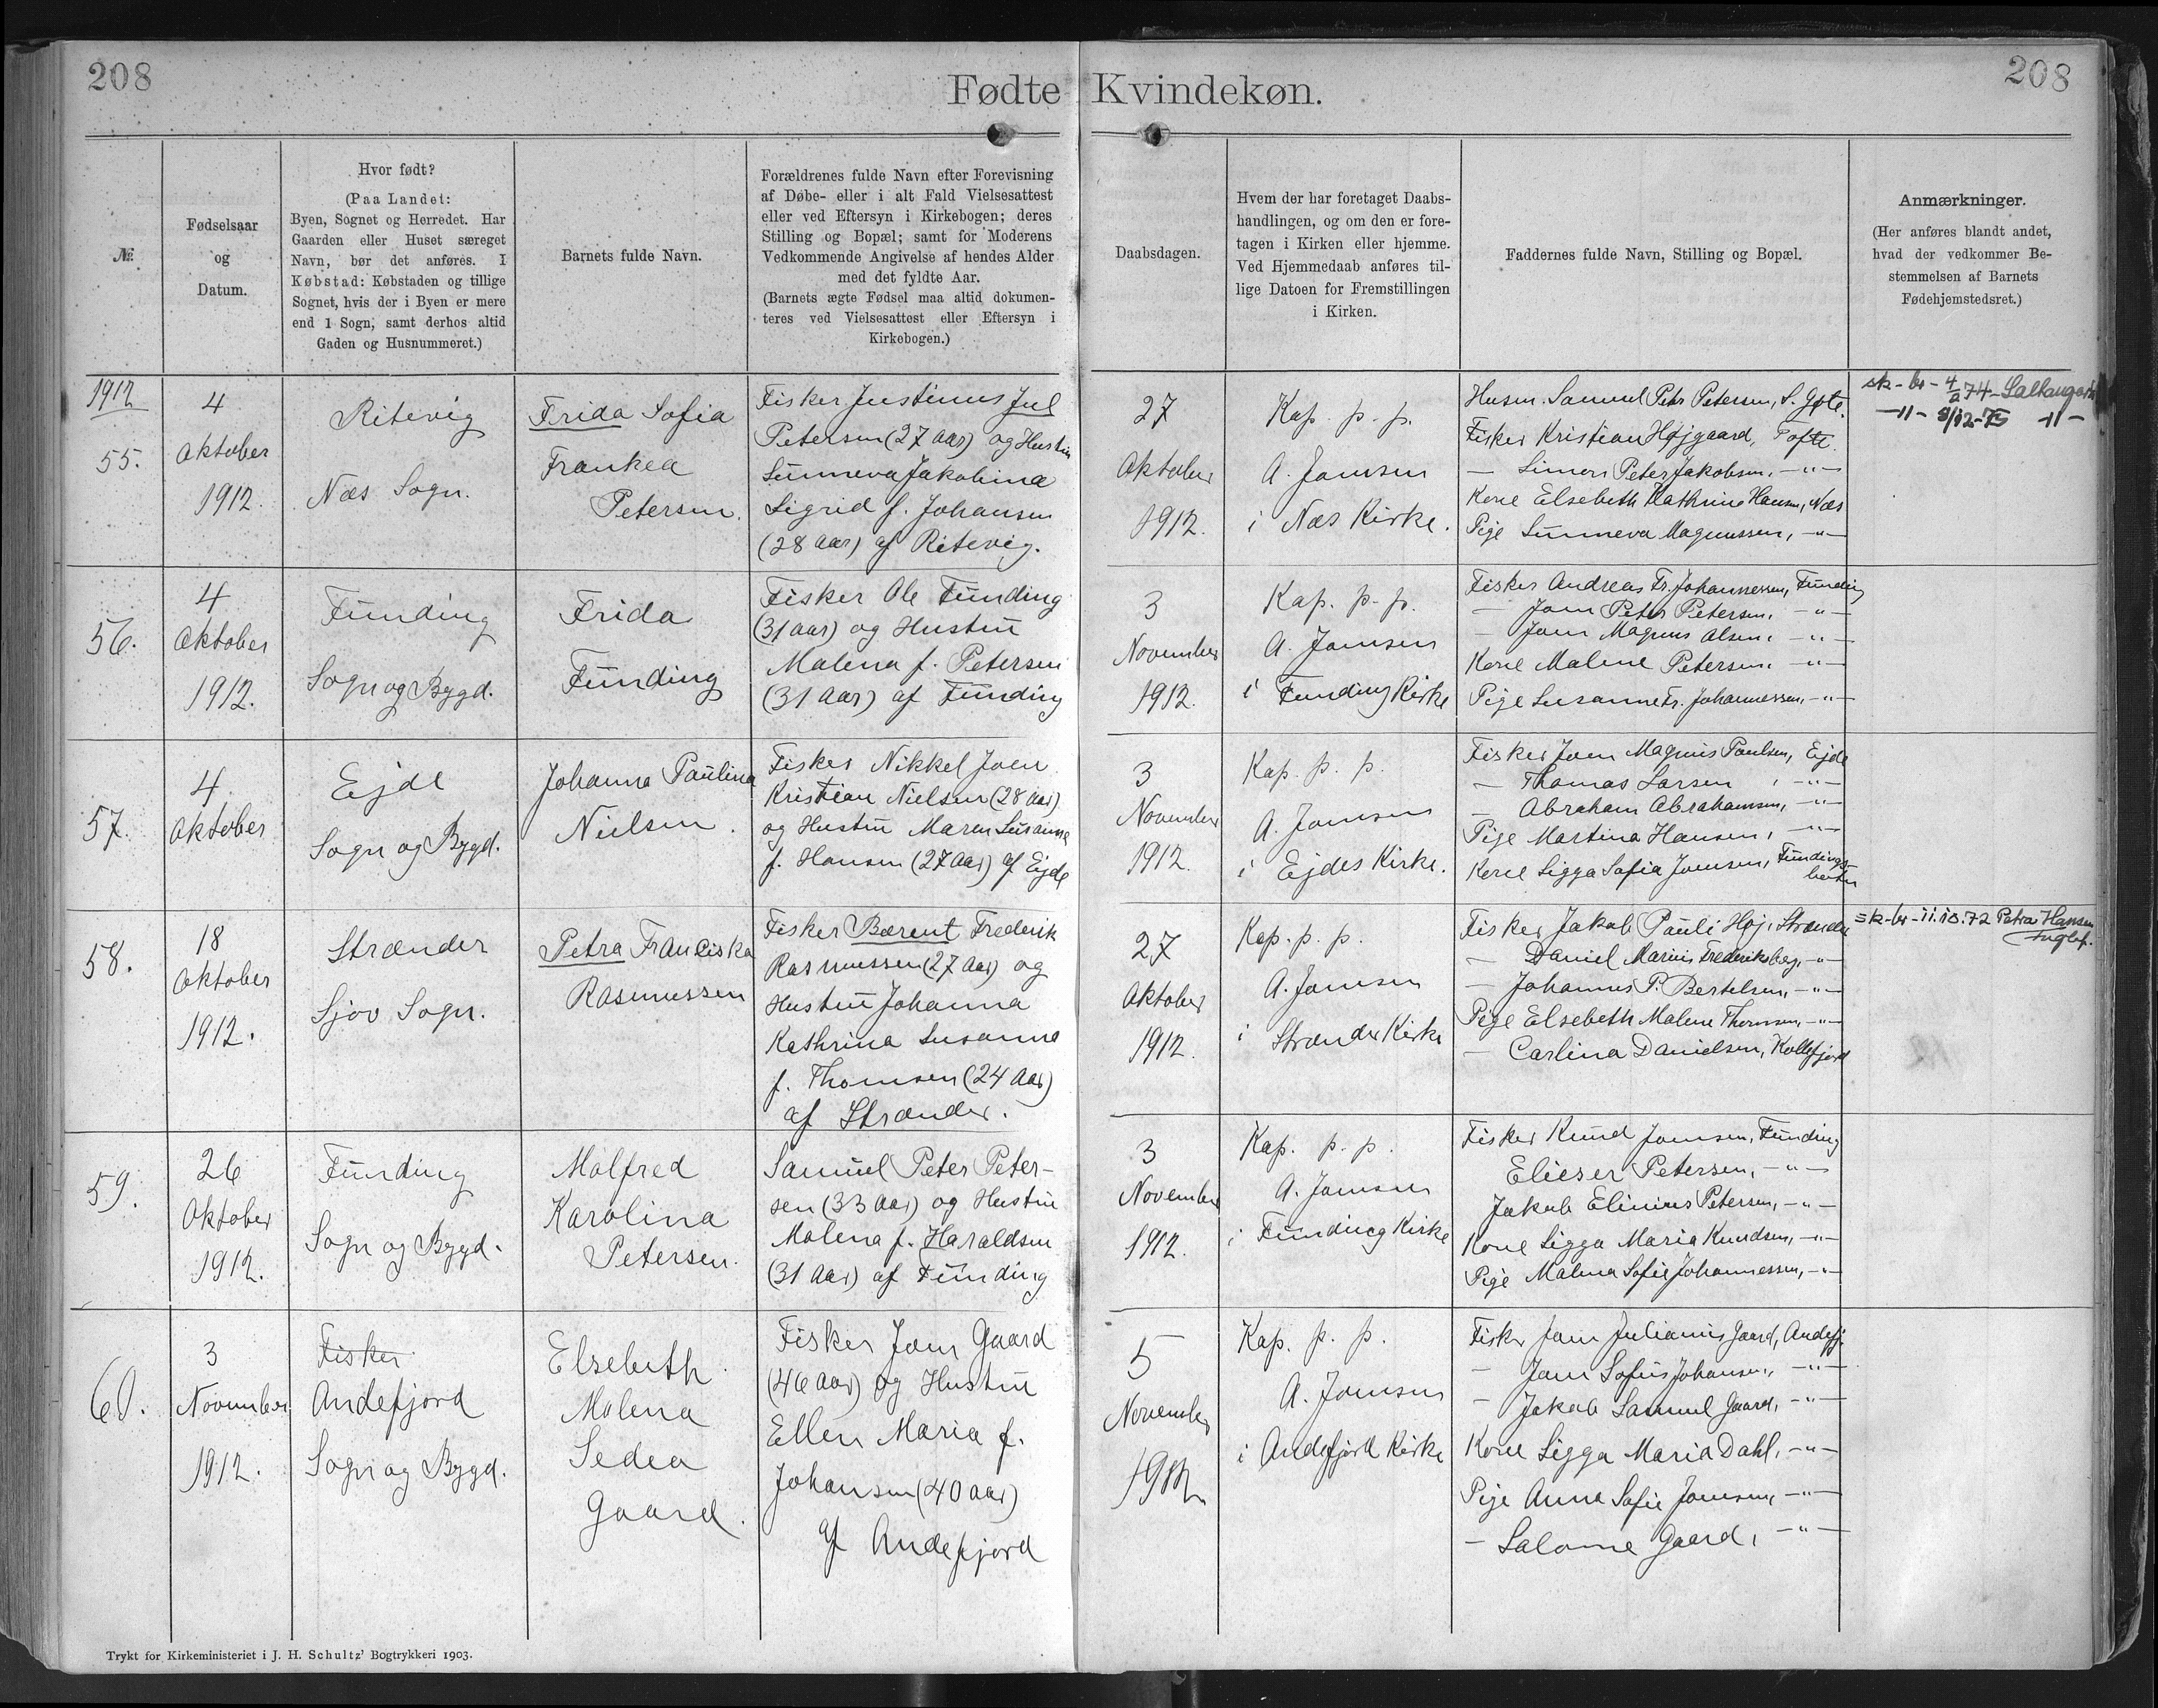 208
Fødte Kvindekøn.
208
№
Fødselsaar
og
Datum.
Hvor født?
(Paa Landet:
Byen, Sognet og Herredet. Har
Gaarden eller Huset særeget
Navn, bør det anføres. I
Købstad: Købstaden og tillige
Sognet, hvis der i Byen er mere
end 1 Sogn, samt derhos altid
Gaden og Husnummeret.)
Barnets fulde Navn.
Forældrenes fulde Navn efter Forevisning
af Døbe- eller i alt Fald Vielsesattest
eller ved Eftersyn i Kirkebogen; deres
Stilling og Bopæl; samt for Moderens
Vedkommende Angivelse af hendes Alder
med det fyldte Aar.
(Barnets ægte Fødsel maa altid dokumen-
teres ved Vielsesattest eller Eftersyn i
Kirkebogen.)
Daabsdagen.
Hvem der har foretaget Daabs-
handlingen, og om den er fore-
tagen i Kirken eller hjemme.
Ved Hjemmedaab anføres til-
lige Datoen for Fremstillingen
i Kirken.
Faddernes fulde Navn, Stilling og Bopæl.
Anmærkninger.
(Her anføres blandt andet,
hvad der vedkommer Be-
stemmelsen af Barnets
Fødehjemstedsret.)
1912
55.
4
Oktober
1912.
Ritevig
Næs Sogn.
Frida Sofia
Frankea
Petersen.
Fisker Justinus Jul
Petersen (27 Aar) og Hustru
Sunneva Jakobina
Sigrid f. Johansen
(28 Aar) af Ritevig.
27
Oktober
1912.
Kap. p. p.
A. Joensen
i Næs Kirke.
Husm. Samuel Petr Petersen, S. Gøte.
Fisker Kristian Højgaard, Tofte
— Simon Peter Jakobsen, —"—
Kone Elsebeth Kathrine Hansen, Næs
Pige Sunneva Magnussen, —"—
sk-br-4/2 74-Saltangará
—11— 8/12-75 —11—
56.
4
Oktober
1912.
Funding
Sogn og Bygd.
Frida
Funding
Fisker Ole Funding
(31 Aar) og Hustru
Malena f. Petersen
(31 Aar) af Funding
3
November
1912.
Kap. p. p.
A. Joensen
i Funding Kirke
Fisker Andreas Fr. Johannessen, Funding
— Joen Peter Petersen, —"—
— Joen Magnus Olsen, —"—
Kone Malene Petersen, —"—
Pige Susanne Fr. Johannessen, —"—
57.
4.
Oktober
Ejde
Sogn og Bygd.
Johanna Paulina
Nielsen.
Fisker Nikkel Joen
Kristian Nielsen (28 Aar)
og Hustru Maren Susanne
f. Hansen (27 Aar) af Ejde
3
November
1912.
Kap. p. p.
A. Joensen
i Ejdes Kirke.
Fisker Joen Magnus Poulsen, Ejde
— Thomas Larsen, —"—
— Abraham Abrahamsen, —"—
Pige Martina Hansen, —"—
Kone Sigga Sofia Joensen, Fundings-
botn
58.
18
Oktober
1912.
Strænder
Sjov Sogn.
Petra Franciska
Rasmussen
Fisker Bærent Frederik
Rasmussen (27 Aar) og
Hustru Johanna
Kathrina Susanna
f. Thomsen (24 Aar)
af Strænder.
27
Oktober
1912.
Kap. p. p.
A. Joensen
i Strænder Kirke
Fisker Jakob Pauli Høj, Strænder
— Daniel Marius Frederiksberg, —"—
— Johannes P. Bertelsen, —"—
Pige Elsebeth Malene Thomsen, —"—
— Carlina Danielsen, Kollefjord
sk-br-11.10.72 Petra Hansen
Fuglef.
59.
26
Oktober
1912.
Funding
Sogn og Bygd.
Malfred
Karolina
Petersen.
Samuel Peter Peter-
sen (33 Aar) og Hustru
Malena f. Haraldsen
(31 Aar) af Funding
3
November
1912.
Kap. p. p.
A. Joensen
i Funding Kirke
Fisker Knud Joensen, Funding
Elieser Petersen, —"—
Jakob Elinius Petersen, —"—
Kone Sigga Maria Knudsen, —"—
Pige Malena Sofie Johannessen, —"—
60.
3
November
1912.
Fisker
Andefjord
Sogn og Bygd.
Elsebeth
Malena
Sedea
Gaard.
Fisker Joen Gaard
(46 Aar) og Hustru
Ellen Maria f.
Johansen (40 Aar)
af Andefjord
5
November
1912.
Kap. p. p.
A. Joensen
i Andefjord Kirke
Fisker Joen Julianus Gaard, Andefj.
— Joen Sofus Johansen, —"—
— Jakob Samuel Gaard, —"—
Kone Sigga Maria Dahl, —"—
Pige Anna Sofie Joensen, —"—
— Salome Gaard, —"—
Trykt for Kirkeministeriet i J. H. Schultz' Bogtrykkeri 1903.